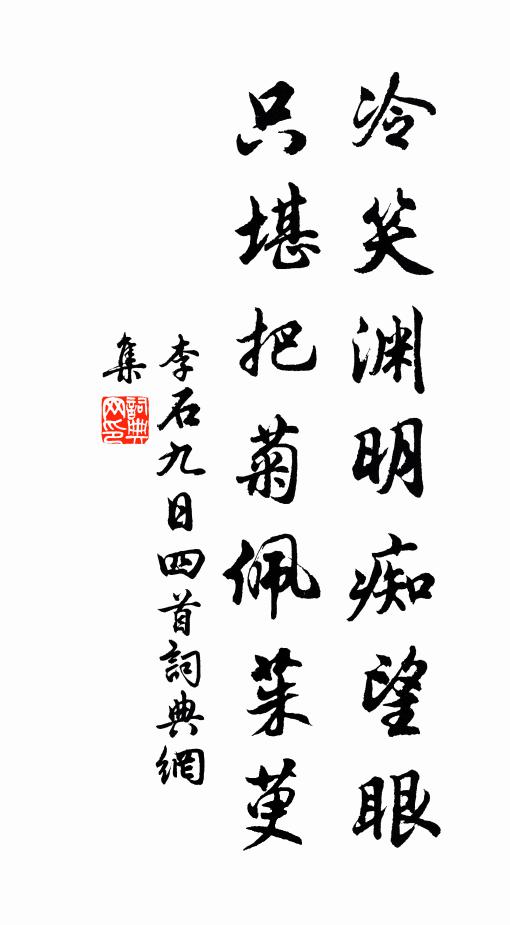 冷笑淵明痴望眼
只堪把菊佩茱萸
李石九日四首詞典網
集
詞典
网印